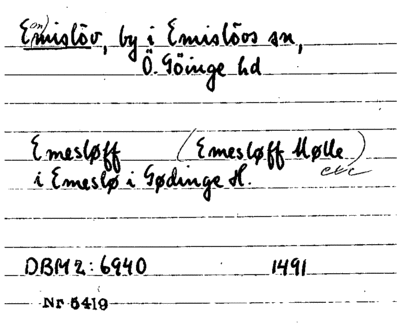 Emislöv, by i Emislövs sn,
Ö. Göinge hd
Emesløff (Emesløff Mølle)
etc
i Emeslø i Gødinge H.
DBM 2: 6940 1491
Nr 5419